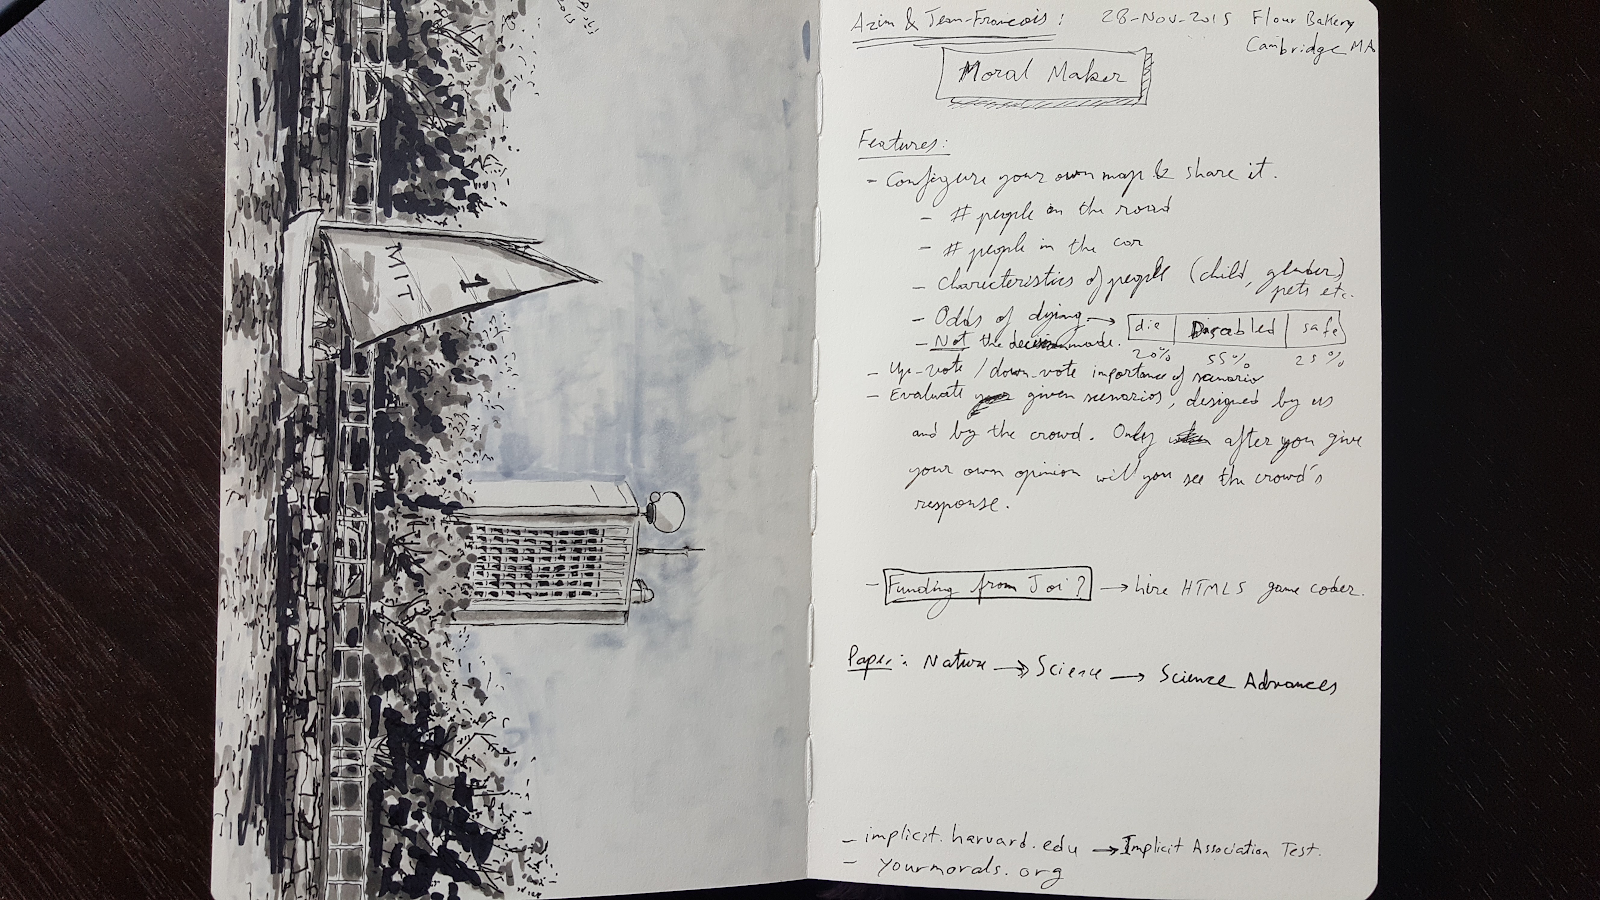 MIT
1
Azim & Jean-Francois: 28-Nov-2015 Flour Bakery
Cambridge MA
Moral Maker
Features:
- Configure your own map & share it.
- # people on the road
- # people in the car
- characteristics of people (child, gender,
pets etc.
- Odds of dying → die | Disabled | safe
20% 55% 25%
- Not the decision made.
- Up-vote / down-vote importance of scenario
- Evaluate given scenarios, designed by us
and by the crowd. Only after you give
your own opinion will you see the crowd's
response.
- Funding from Joi? → hire HTML5 game coder.
Paper: Nature → Science → Science Advances
- implicit.harvard.edu → Implicit Association Test.
- yourmorals.org